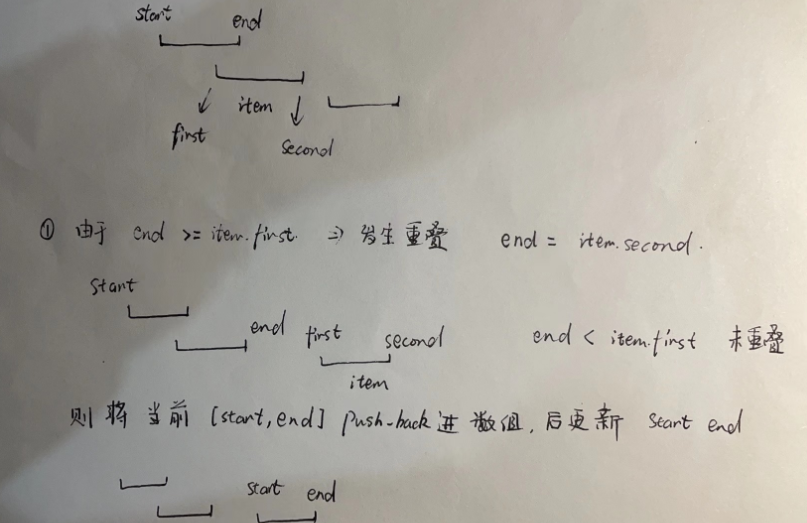 start end
item
first second
① 由于 end >= item.first. ⇒ 发生重叠 end = item.second.
start
end first second end < item.first 未重叠
item
则将当前 [start, end] push-back 进数组, 后更新 start end
start end